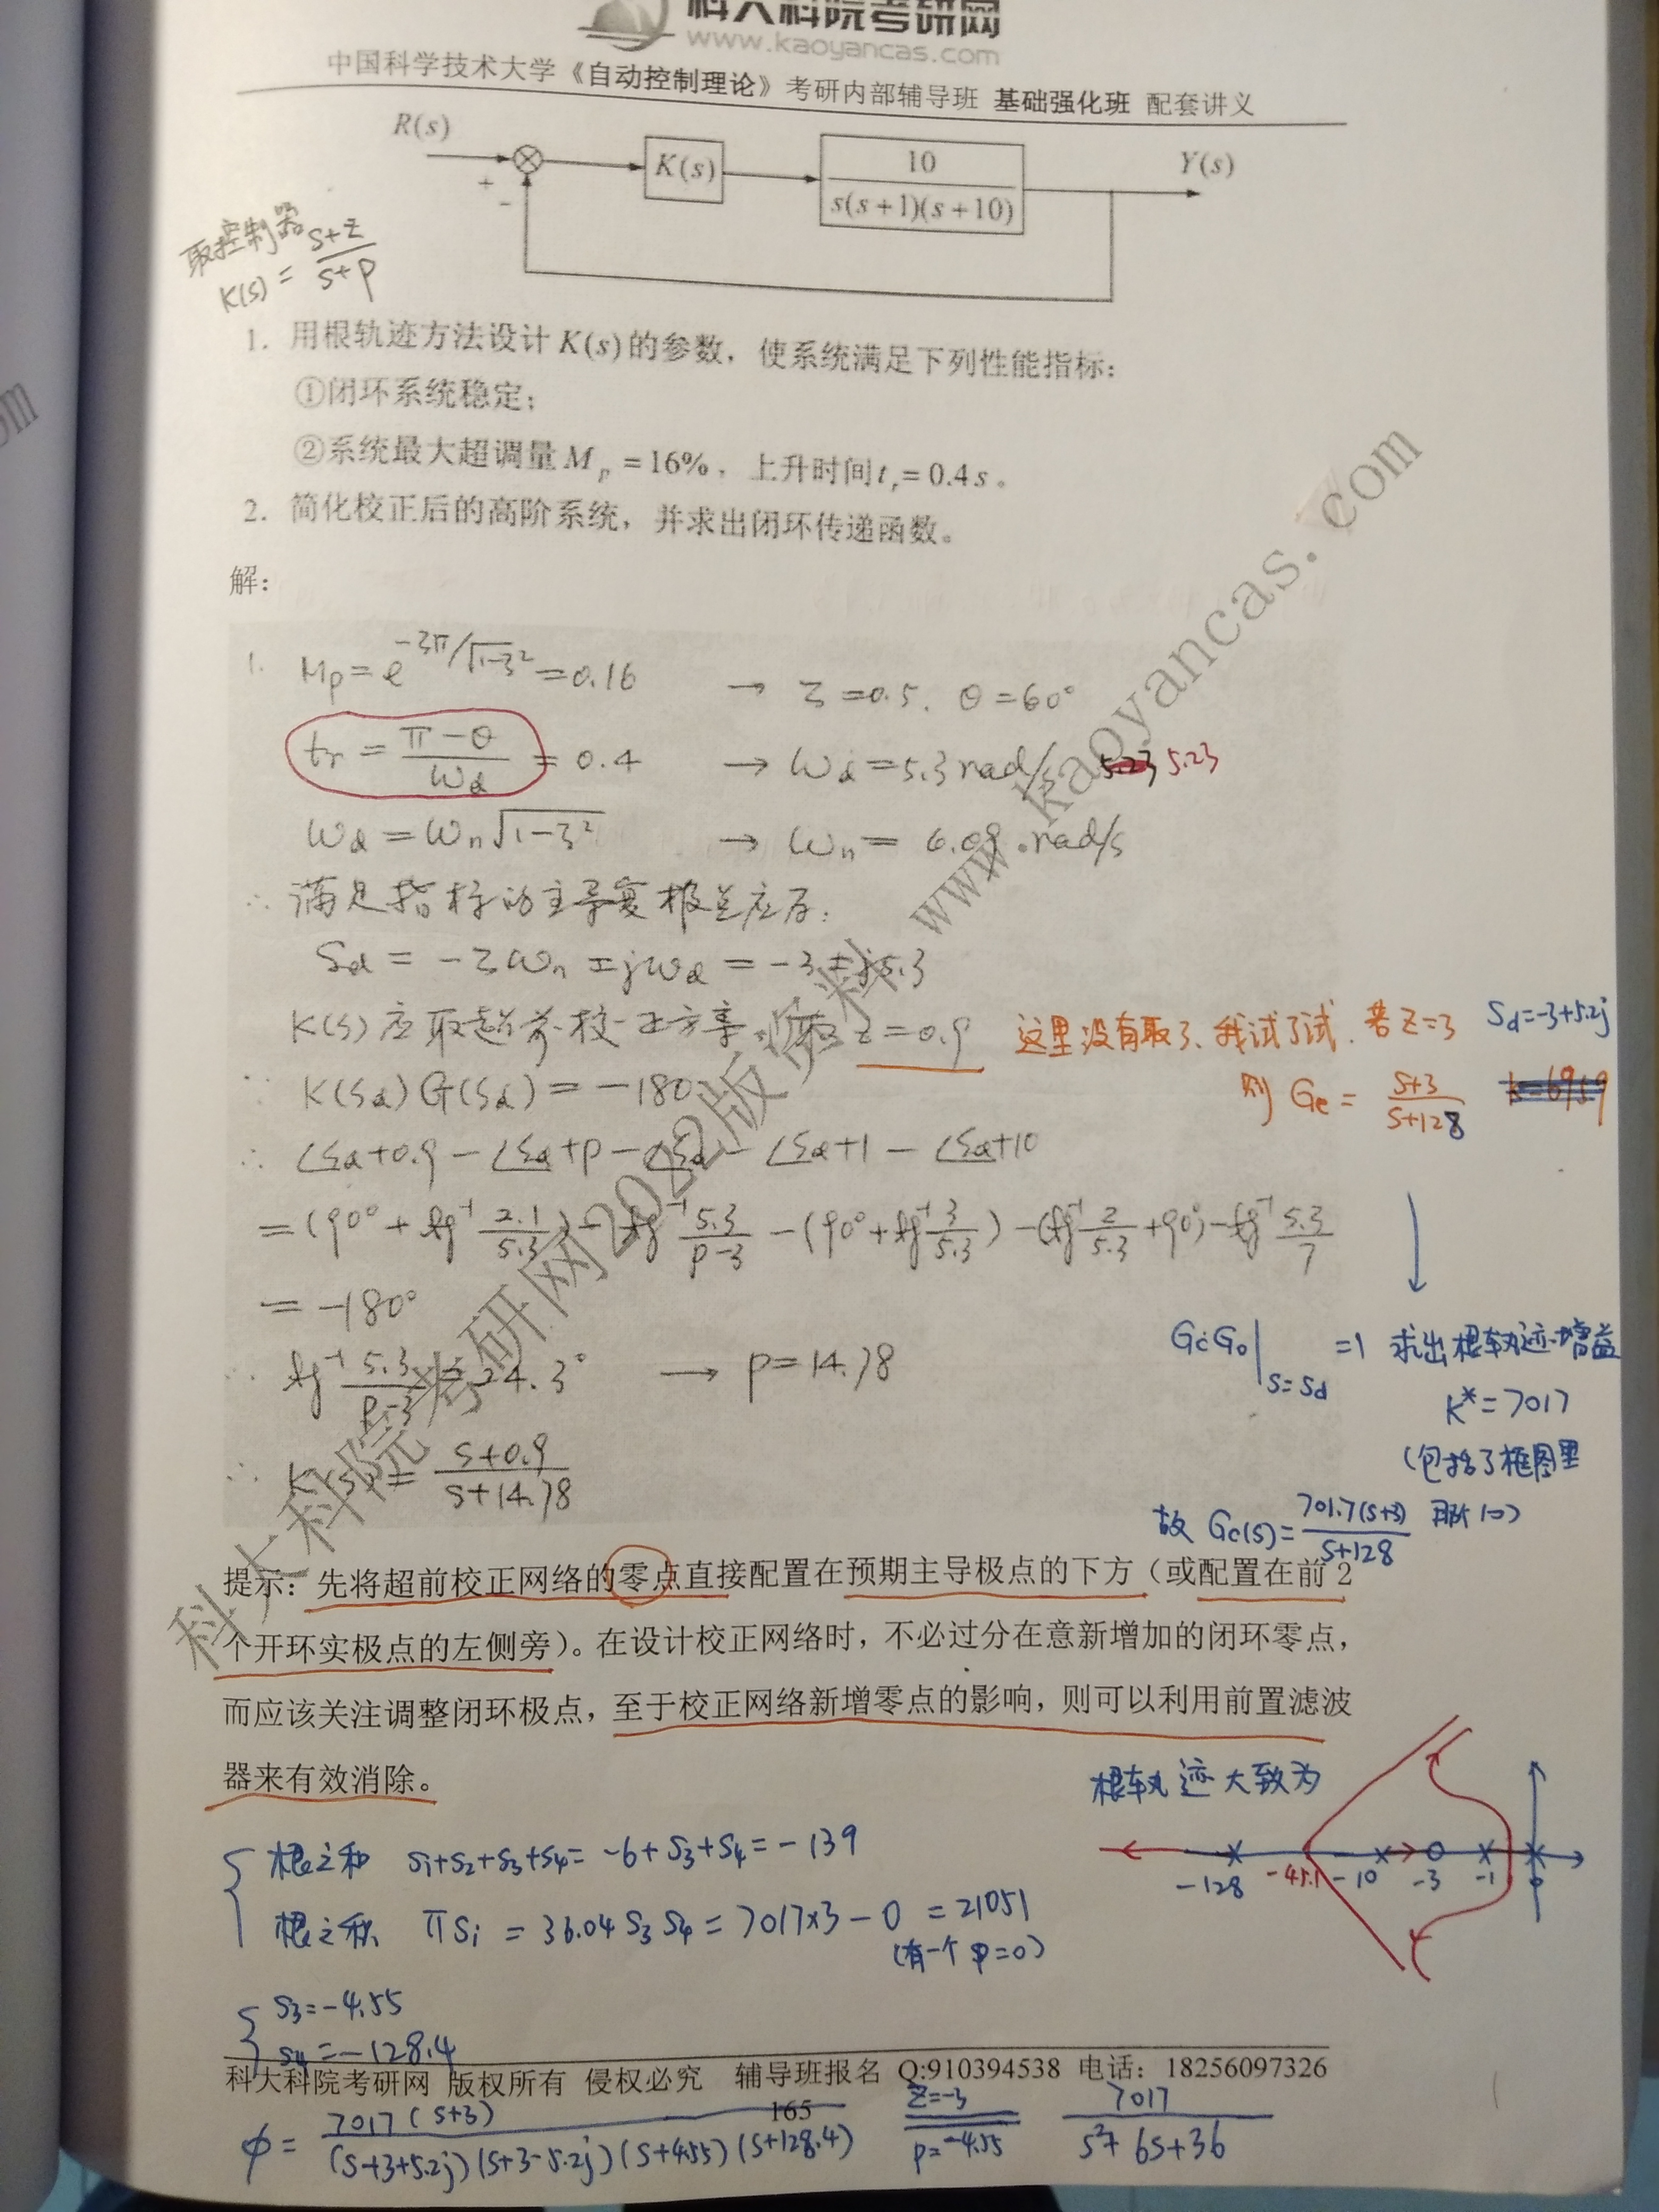 科大科院考研网
www.kaoyancas.com
中国科学技术大学《自动控制理论》考研内部辅导班 基础强化班 配套讲义
R(s)
+
-
K(s)
10
s(s+1)(s+10)
Y(s)
取控制器
K(s) = (s+z)/(s+p)
1. 用根轨迹方法设计 K(s) 的参数，使系统满足下列性能指标：
①闭环系统稳定；
②系统最大超调量 M_p = 16%，上升时间 t_r = 0.4s。
2. 简化校正后的高阶系统，并求出闭环传递函数。
解：
1. Mp = e^(-ζπ/√(1-ζ²)) = 0.16 → ζ = 0.5. θ = 60°
tr = (π-θ)/ωd = 0.4 → ωd = 5.3 rad/s 5.23 5.23
ωd = ωn√(1-ζ²) → ωn = 6.09 rad/s
∴ 满足指标的主导复根点应为：
Sd = -ζωn ± jωd = -3 ± j5.3
K(s) 应取超前校正方案, 取 z = 0.9 这里没有取3、我试了试. 若 Z=3 Sd=-3+5.2j
则 Gc = (s+3)/(s+128)
∵ K(Sd)G(Sd) = -180
∴ ∠Sd+0.9 - ∠Sd+p - ∠Sd - ∠Sd+1 - ∠Sd+10
= (90° + tg⁻¹ 2.1/5.3) - tg⁻¹ 5.3/(p-3) - (90° + tg⁻¹ 3/5.3) - (tg⁻¹ 2/5.3 + 90°) - tg⁻¹ 5.3/7
= -180°
GcG0|s=sd =1 求出根轨迹增益
K* = 7017
(包括了框图里那个10)
∴ tg⁻¹ 5.3/(p-3) = 24.3° → p = 14.78
∴ K(s) = (s+0.9)/(s+14.78)
故 Gc(s) = 701.7(s+3)/(s+128)
提示：先将超前校正网络的零点直接配置在预期主导极点的下方（或配置在前 2
个开环实极点的左侧旁）。在设计校正网络时，不必过分在意新增加的闭环零点，
而应该关注调整闭环极点，至于校正网络新增零点的影响，则可以利用前置滤波
器来有效消除。
根轨迹大致为
-128 -45.1 -10 -3 -1 0
根之和 s1+s2+s3+s4 = -6+s3+s4 = -139
根之积 πsi = 36.04 s3 s4 = 7017×3 - 0 = 21051
(有一个p=0)
s3 = -4.55
s4 = -128.4
科大科院考研网 版权所有 侵权必究 辅导班报名 Q:910394538 电话：18256097326
165
φ = 7017(s+3)/((s+3+5.2j)(s+3-5.2j)(s+4.55)(s+128.4)) z=-3 p=-4.55 7017/(s²+6s+36)
科大科院考研网2022版资料 www.kaoyancas.com
om